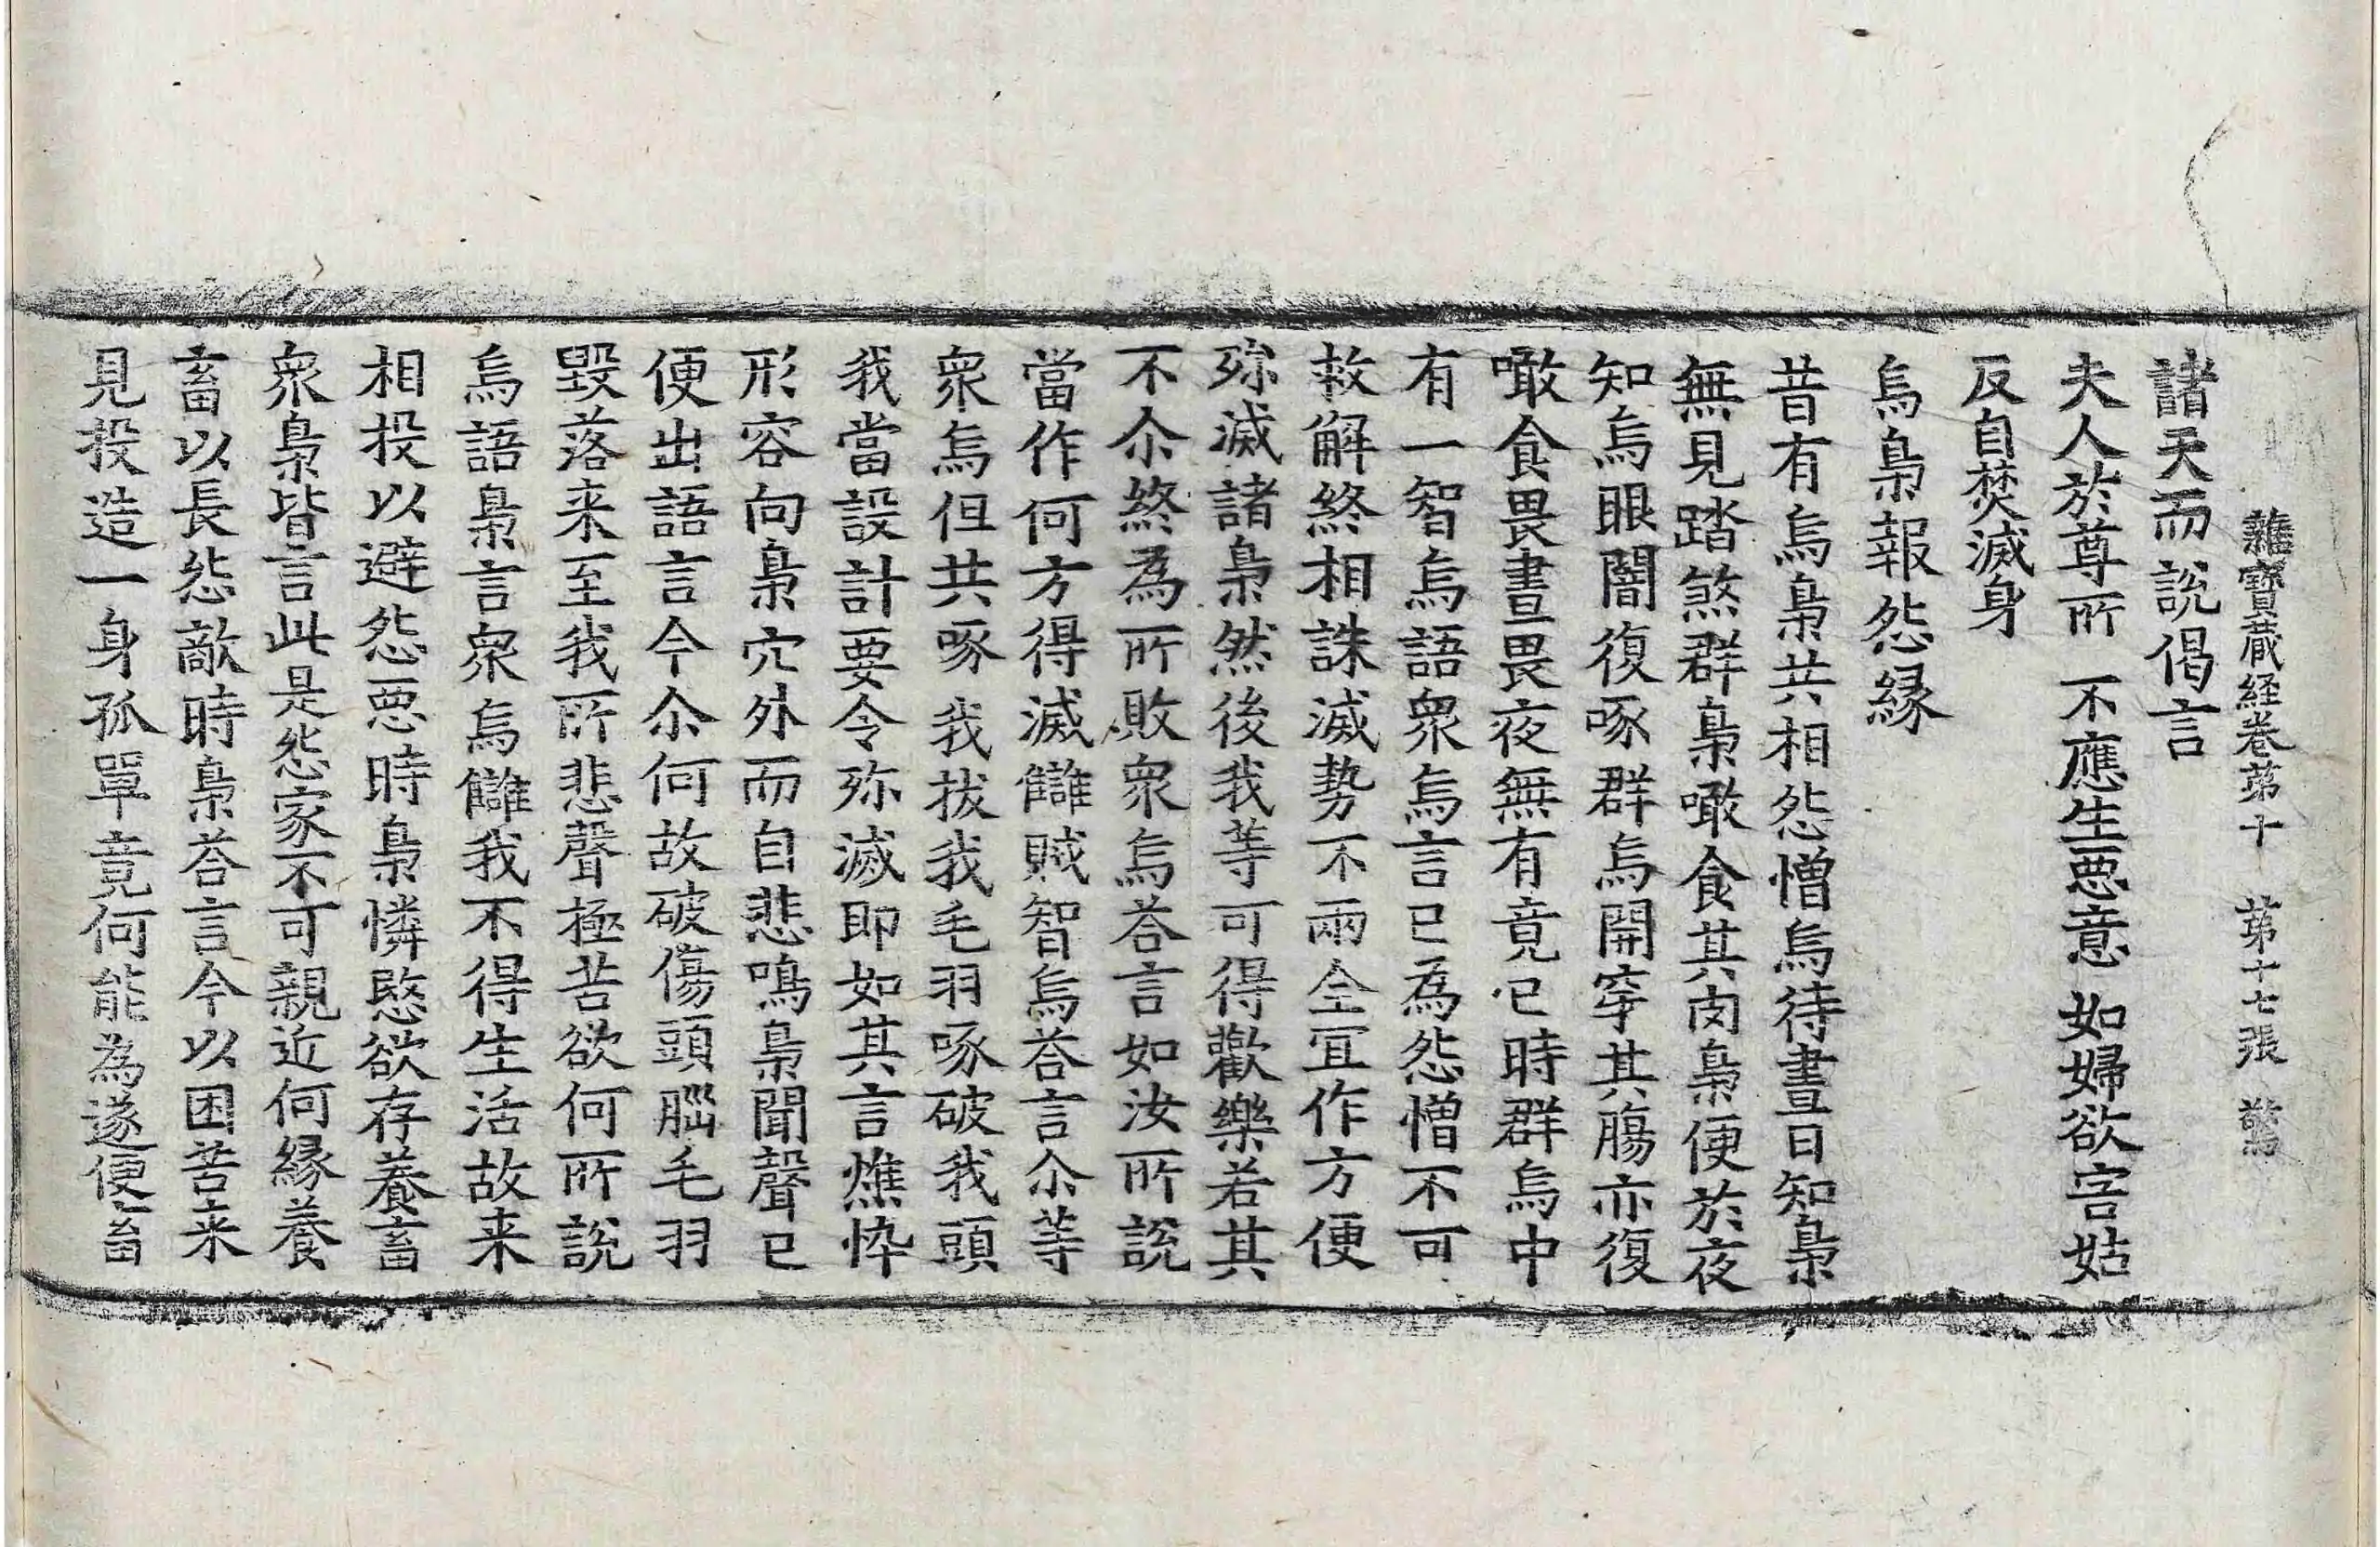 雜寶蔵経卷苐十　苐十七張　驚
諸天而說偈言
夫人於尊所　不應生惡意　如婦欲害姑
反自焚滅身
烏梟報怨縁
昔有烏梟共相怨憎烏待晝日知梟
無見踏煞群梟噉食其肉梟便於夜
知烏眼闇復啄群烏開穿其膓亦復
噉食畏晝畏夜無有竟已時群烏中
有一智烏語衆烏言已為怨憎不可
救解終相誅滅勢不兩全冝作方便
殄滅諸梟然後我等可得歡樂若其
不尒終為所敗衆烏荅言如汝所說
當作何方得滅讎賊智烏荅言尒等
衆烏但共啄我拔我毛羽啄破我頭
我當設計要令殄滅即如其言憔悴
形容向梟穴外而自悲鳴梟聞聲已
便出語言今尒何故破傷頭腦毛羽
毀落来至我所悲聲極苦欲何所說
烏語梟言衆烏讎我不得生活故来
相投以避怨惡時梟憐愍欲存養畜
衆梟皆言此是怨家不可親近何縁養
畜以長怨敵時梟荅言今以困苦来
見投造一身孤單竟何能為遂便畜